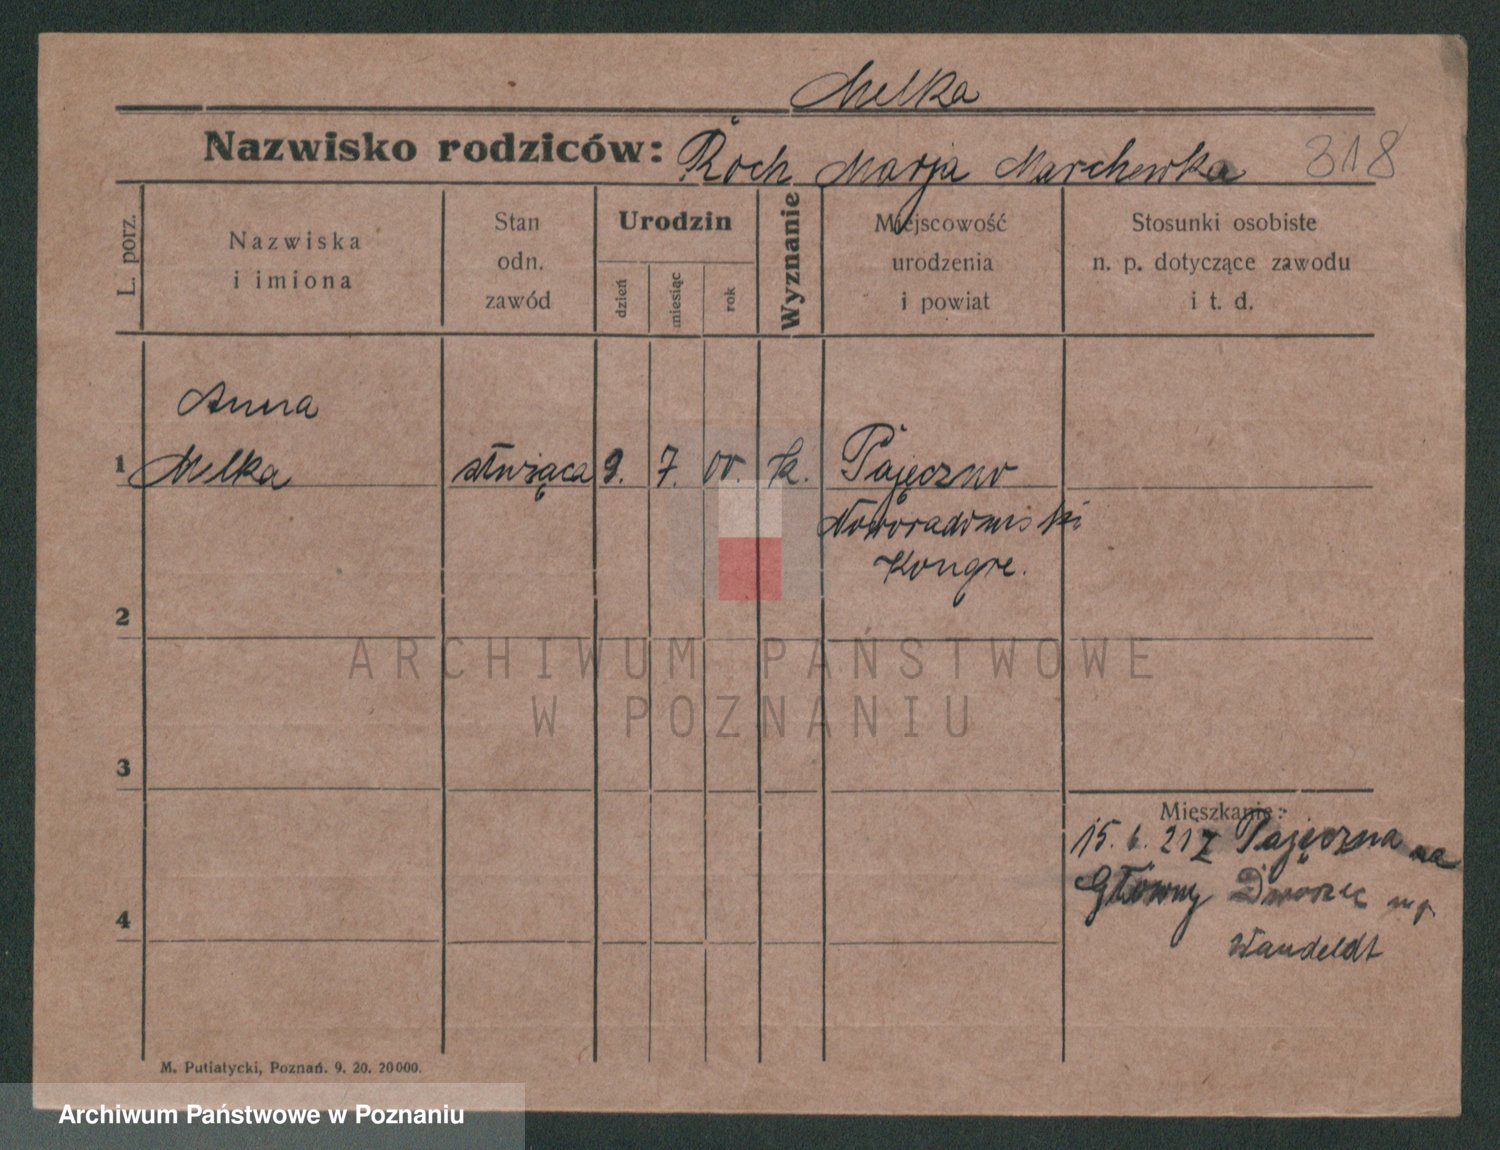 Melka
Nazwisko rodziców: Roch Marja Marchewka 318
L. porz.
Nazwiska
i imiona
Stan
odn.
zawód
Urodzin
dzień
miesiąc
rok
Wyznanie
Miejscowość
urodzenia
i powiat
Stosunki osobiste
n. p. dotyczące zawodu
i t. d.
Anna
1 Melka służąca 9. 7. 00. k. Pajęczno
Noworadomski
Kongre.
2
ARCHIWUM PAŃSTWOWE
W POZNANIU
3
Mieszkanie:
15. 6. 21 z Pajęczna na
Główny Dworzec
4
M. Putiatycki, Poznań. 9. 20. 20000.
Archiwum Państwowe w Poznaniu